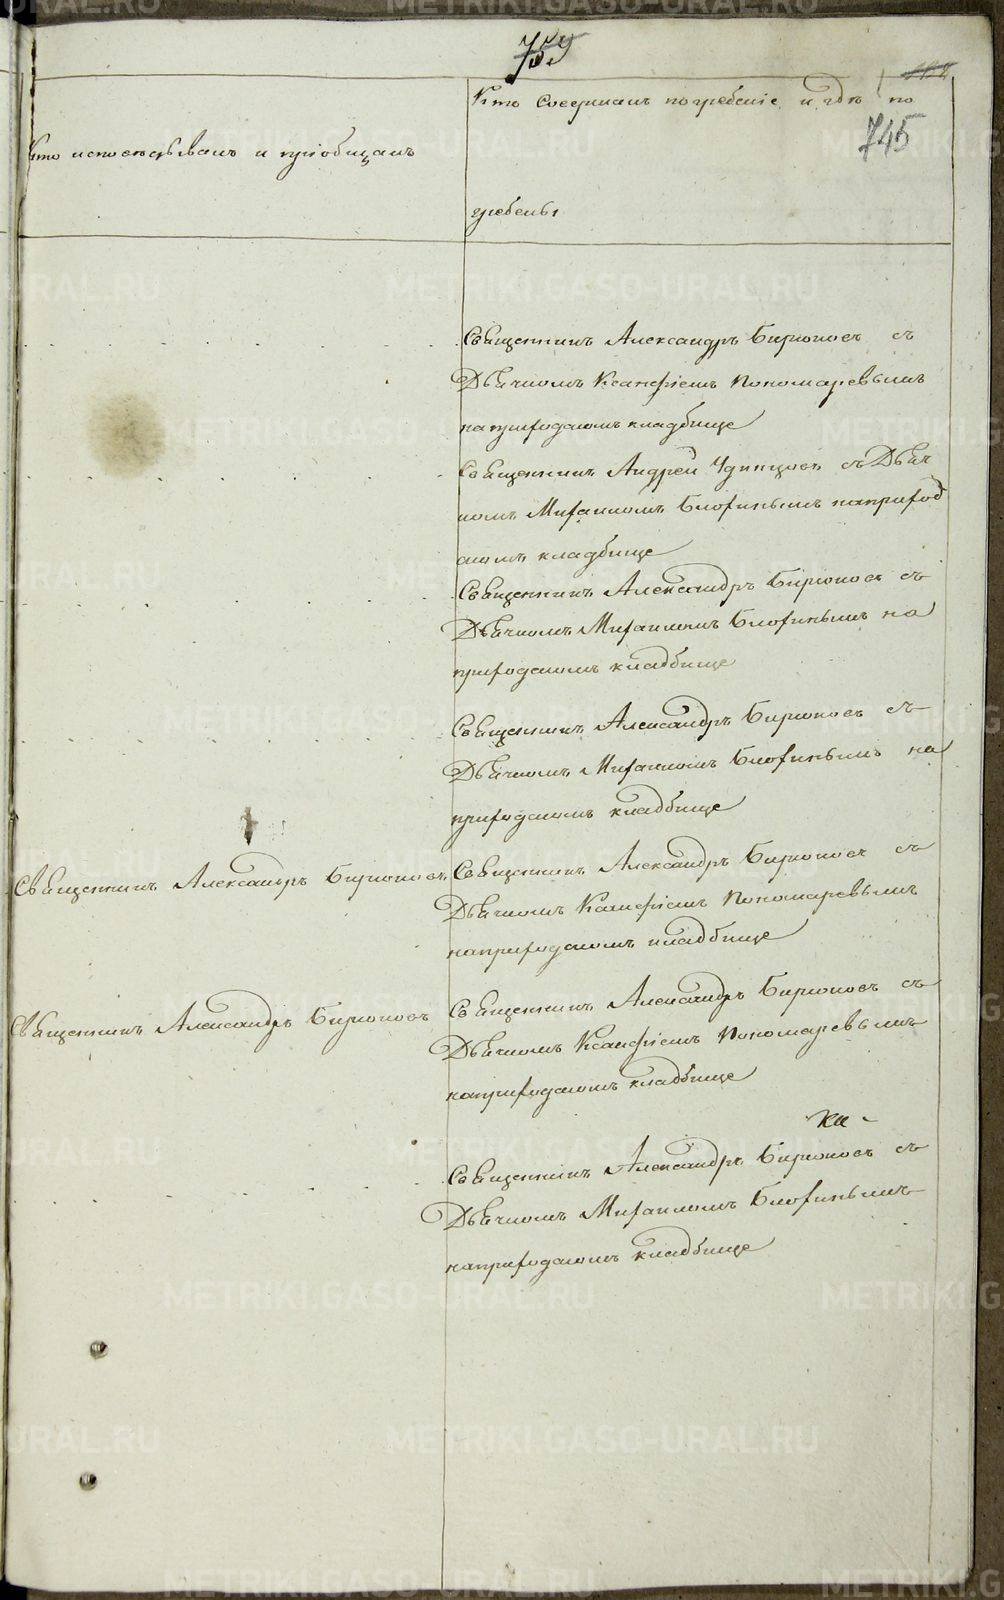 759
745
Кто совершалъ погребеніе и гдѣ по
Кто исповѣдывалъ и пріобщалъ
гребены
Священникъ Александръ Бирюковъ съ
Дьячкомъ Ксанфіемъ Пономаревымъ
на приходскомъ кладбище
Священникъ Андрей Удинцовъ съ Дьяч
комъ Михаиломъ Блохинымъ на приход
скомъ кладбище
Священникъ Александръ Бирюковъ съ
Дьячкомъ Михаиломъ Блохинымъ на
приходскомъ кладбище
Священникъ Александръ Бирюковъ съ
Дьячкомъ Михаиломъ Блохинымъ на
приходскомъ кладбище
Священникъ Александръ Бирюковъ
Священникъ Александръ Бирюковъ съ
Дьячкомъ Ксанфіемъ Пономаревымъ
на приходскомъ кладбище
Священникъ Александръ Бирюковъ
Священникъ Александръ Бирюковъ съ
Дьячкомъ Ксанфіемъ Пономаревымъ
на приходскомъ кладбище
Священникъ Александръ Бирюковъ съ
Дьячкомъ Михаиломъ Блохинымъ
на приходскомъ кладбище
METRIKI.GASO-URAL.RU